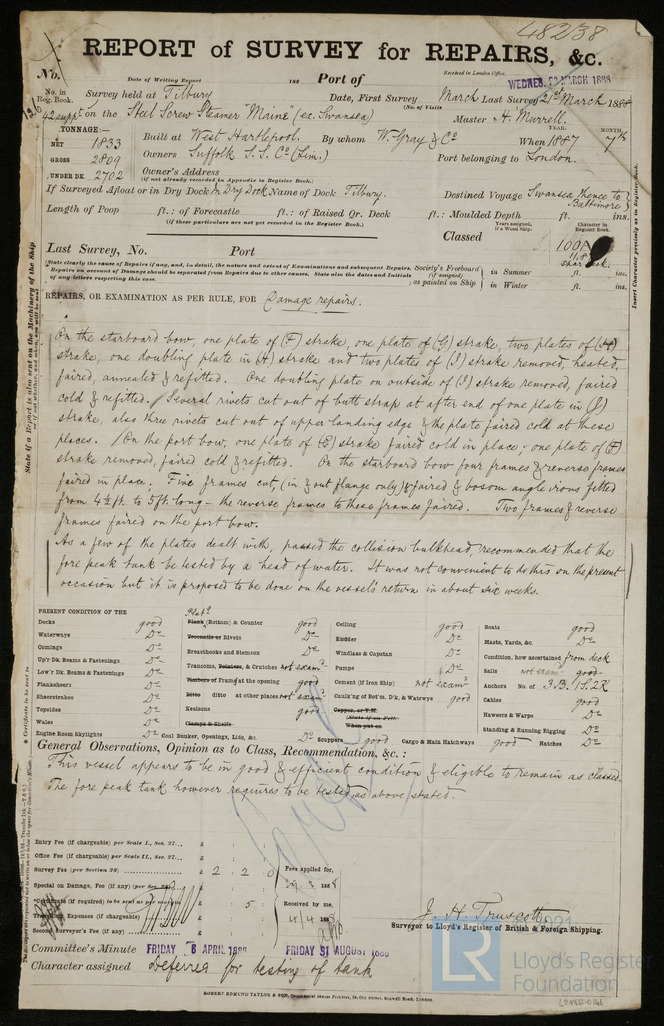 48238
REPORT of SURVEY for REPAIRS, &c.
No. Date of Writing Report 188 Port of Received in London Office, WEDNES. MARCH 1888
No. in Reg. Book. Survey held at Tilbury Date, First Survey March Last Survey 21st March 1888
(No. of Visits
42 suppt on the Steel Screw Steamer "Maine" (ex. Swansea) Master H. Murrell.
TONNAGE:— YEAR. MONTH.
NET 1833 Built at West Hartlepool. By whom W. Gray & Co When 1887 7th
GROSS 2809 Owners Suffolk S. S. Co (Lim.) Port belonging to London.
UNDER DK. 2702 Owner's Address
(if not already recorded in Appendix to Register Book.)
If Surveyed Afloat or in Dry Dock In Dry Dock Name of Dock Tilbury. Destined Voyage Swansea thence to Baltimore
Length of Poop ft.: of Forecastle ft.: of Raised Qr. Deck ft.: Moulded Depth ft. ins.
(if these particulars are not yet recorded in the Register Book.) Years assigned, if a Wood Ship. Character in Register Book.
Classed 100A
Last Survey, No. Port
(State clearly the cause of Repairs if any, and, in detail, the nature and extent of Examinations and subsequent Repairs.
Repairs on account of Damage should be separated from Repairs due to other causes. State also the dates and Initials of any letters respecting this case.
Society's Freeboard (if assigned) as painted on Ship in Summer ft. ins.
in Winter ft. ins.
REPAIRS, OR EXAMINATION AS PER RULE, FOR Damage repairs.
On the starboard bow, one plate of (F) strake, one plate of (G) strake, two plates of (H)
strake, one doubling plate in (H) strake and two plates of (I) strake removed, heated,
faired, annealed & refitted. One doubling plate on outside of (I) strake removed, faired
cold & refitted. Several rivets cut out of butt strap at after end of one plate in (J)
strake, also three rivets cut out of upper landing edge & the plate faired cold at these
places. On the port bow, one plate of (E) strake faired cold in place; one plate of (F)
strake removed, faired cold & refitted. On the starboard bow four frames & reverse frames
faired in place. Five frames cut, (in & out flange only) & faired & bosom angle irons fitted
from 4½ ft. to 5 ft. long – the reverse frames to these frames faired. Two frames & reverse
frames faired on the port bow.
As a few of the plates dealt with, passed the collision bulkhead, recommended that the
fore peak tank be tested by a head of water. It was not convenient to do this on the present
occasion but it is proposed to be done on the vessel's return in about six weeks.
PRESENT CONDITION OF THE
Decks good
Waterways Do
Comings Do
Up'r Dk. Beams & Fastenings Do
Low'r Dk. Beams & Fastenings Do
Planksheers Do
Sheerstrakes Do
Topsides Do
Wales Do
Engine Room Skylights Do
Plate
Plank (Bottom) & Counter good
Treenails or Rivets Do
Breasthooks and Stemson Do
Transoms, Pointers, & Crutches not examd
Timbers of Frame at the opening good
Ditto ditto at other places not examd
Keelsons good
Clamps & Shelfs
Coal Bunker, Openings, Lids, &c. Do
Ceiling good
Rudder Do
Windlass & Capstan Do
Pumps Do
Cement (if Iron Ship) not examd
Caulk'ng of Bot'm, D'k, & Watrwys good
Copper, or Y.M.
(State if on Felt.
When put on
Scuppers good Cargo & Main Hatchways good Hatches Do
Boats good
Masts, Yards, &c. Do
Condition, how ascertained from deck
Sails not examd good
Anchors No. of 3.B. 1S. 2K
Cables good
Hawsers & Warps Do
Standing & Running Rigging Do
General Observations, Opinion as to Class, Recommendation, &c.:
This vessel appears to be in good & efficient condition & eligible to remain as classed.
The fore peak tank however requires to be tested, as above stated.
Entry Fee (if chargeable) per Scale I., Sec. 27... £
Office Fee (if chargeable) per Scale II., Sec. 27... £
Survey Fee (per Section 29) £ 2 : 2 : 0 Fees applied for,
Special on Damage, Fee (if any) (per Sec. 29) £ 29.3.1888
Certificate (if required) to be sent as per margin £ 5 Received by me,
Travelling Expenses (if chargeable) £ 4/4 1888
Second Surveyor's Fee (if any) £
J. H. Truscott
Surveyor to Lloyd's Register of British & Foreign Shipping.
Committee's Minute FRIDAY 6 APRIL 1888 FRIDAY 31 AUGUST 1888
Character assigned Deferred for testing of tank
ROBERT EDMUND TAYLOR & SON
LR Lloyd's Register Foundation
State if a Report is also sent on the Machinery of the Ship
Insert Character precisely as in Register Book.